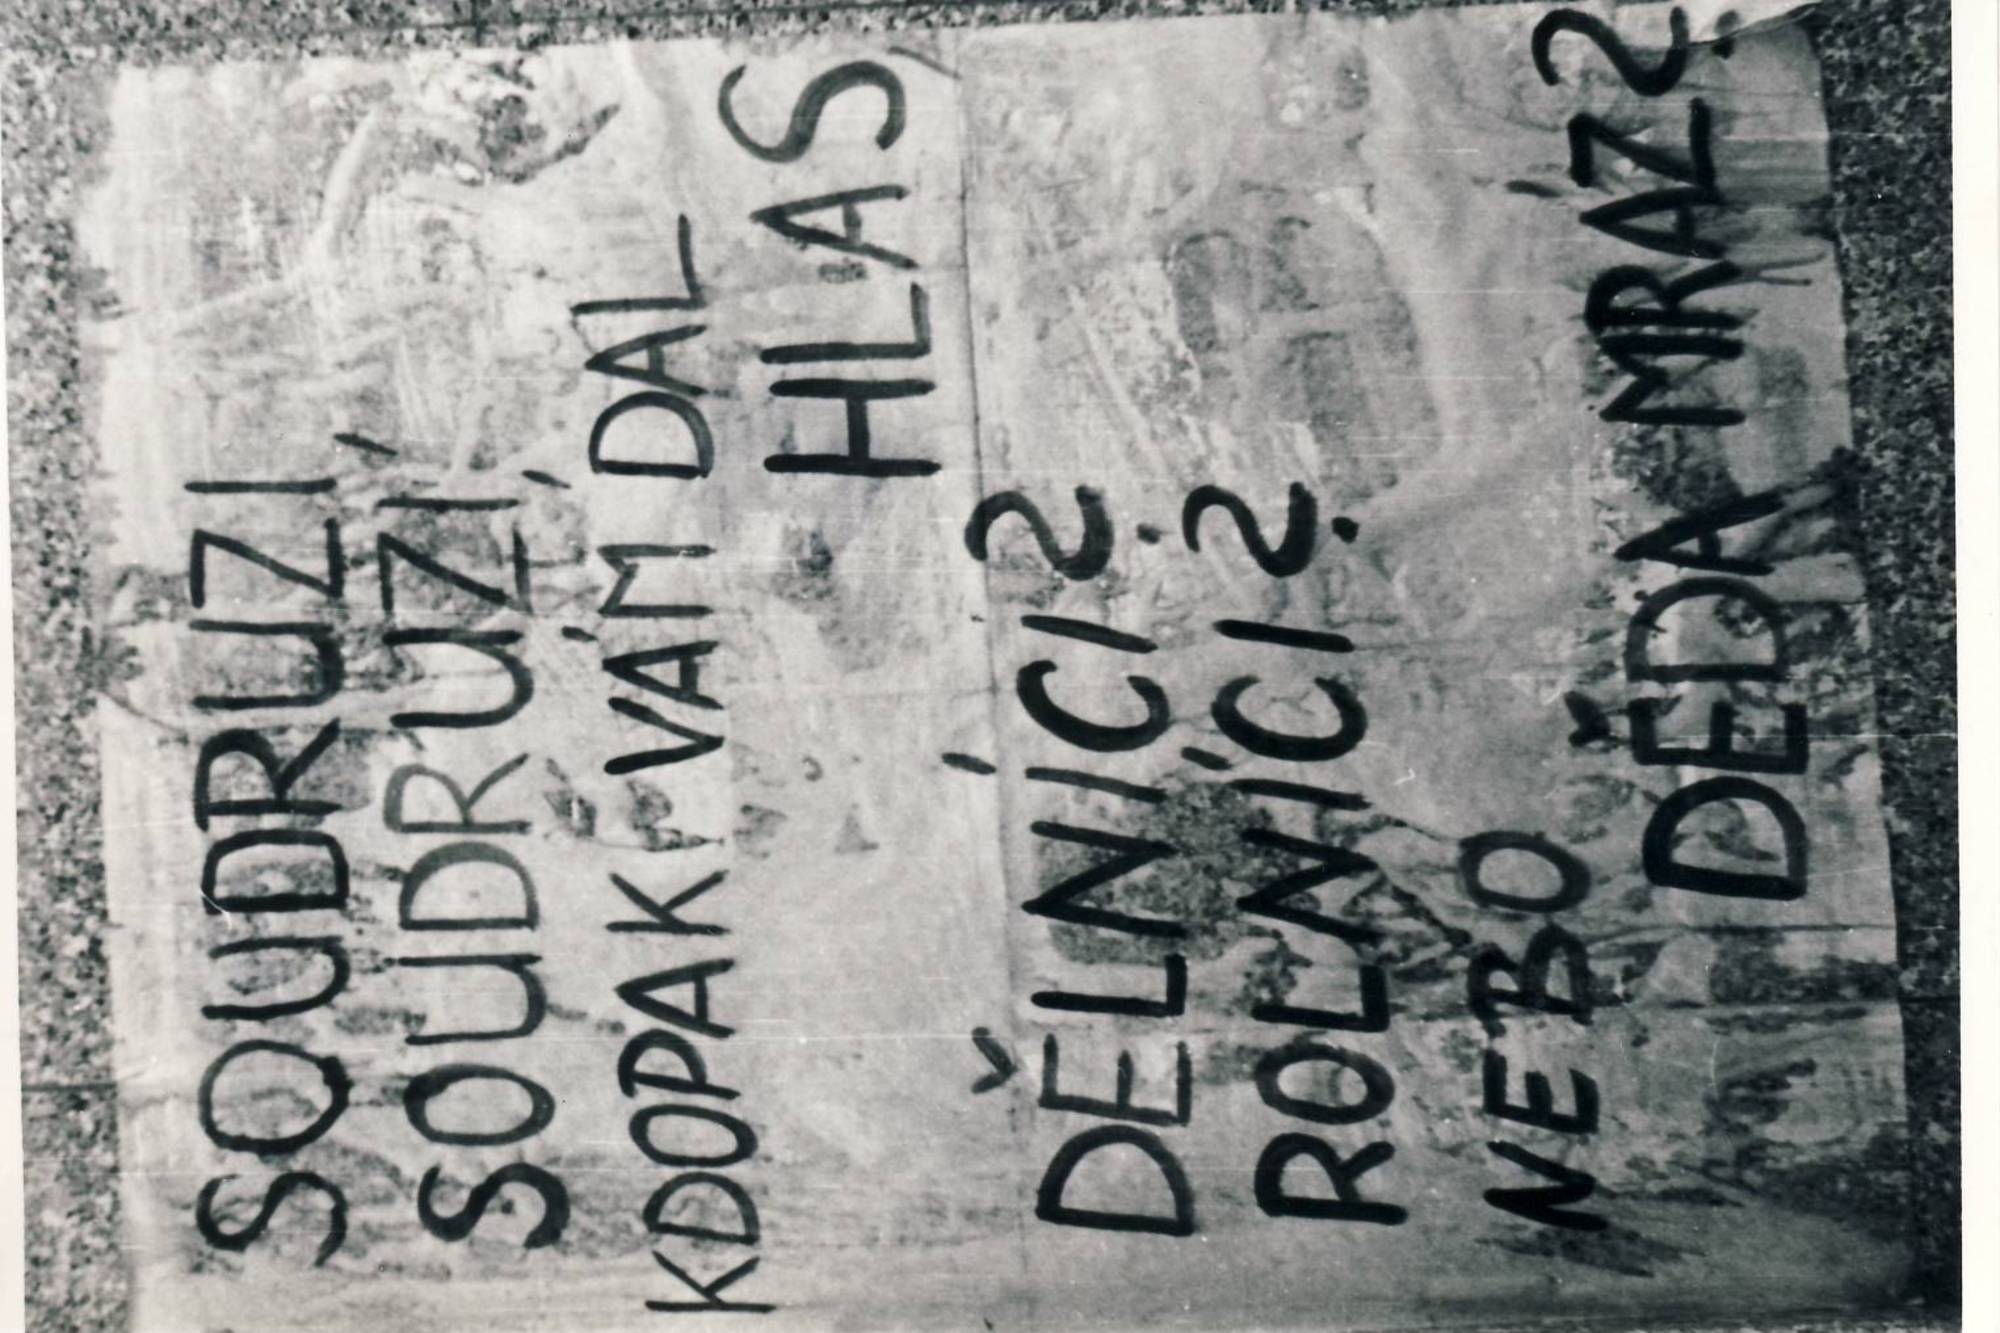 SOUDRUZI,
SOUDRUZI,
KDOPAK VÁM DAL
HLAS,
DĚLNÍCI?
ROLNÍCI?
NEBO
DĚDA MRÁZ?